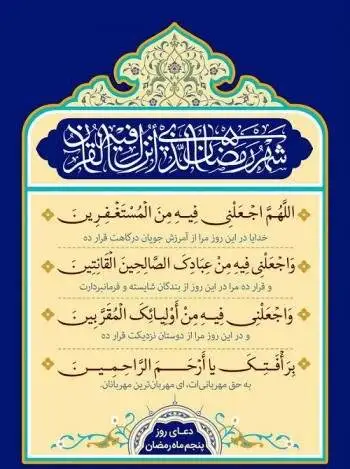 شَهْرُ رَمَضَانَ الَّذِي أُنْزِلَ فِيهِ الْقُرْآنُ
اَللَّهُمَّ اجْعَلْنِی فِیهِ مِنَ الْمُسْتَغْفِرِینَ
خدایا در این روز مرا از آمرزش جویان درگاهت قرار ده
وَاجْعَلْنِی فِیهِ مِنْ عِبَادِکَ الصَّالِحِینَ الْقَانِتِینَ
و قرار ده مرا در این روز از بندگان شایسته و فرمانبردارت
وَاجْعَلْنِی فِیهِ مِنْ أَوْلِیَائِکَ الْمُقَرَّبِینَ
و در این روز مرا از دوستان نزدیکت قرار ده
بِرَأْفَتِکَ یَا أَرْحَمَ الرَّاحِمِینَ
به حق مهربانی‌ات، ای مهربان‌ترین مهربانان.
دعای روز
پنجم ماه رمضان